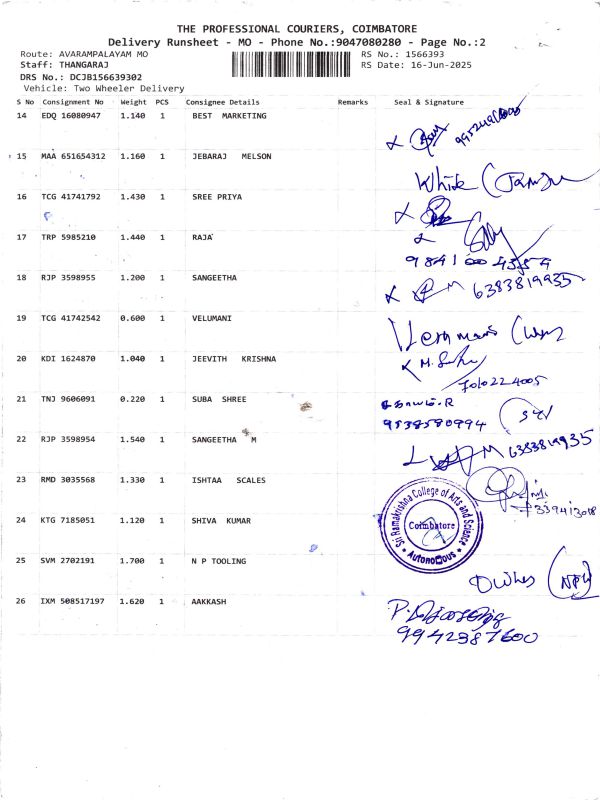 THE PROFESSIONAL COURIERS, COIMBATORE
Delivery Runsheet - MO - Phone No.:9047080280 - Page No.:2
Route: AVARAMPALAYAM MO RS No.: 1566393
Staff: THANGARAJ RS Date: 16-Jun-2025
DRS No.: DCJB156639302
Vehicle: Two Wheeler Delivery
S No Consignment No Weight PCS Consignee Details Remarks Seal & Signature
14 EDQ 16080947 1.140 1 BEST MARKETING
15 MAA 651654312 1.160 1 JEBARAJ MELSON
White
16 TCG 41741792 1.430 1 SREE PRIYA
17 TRP 5985210 1.440 1 RAJA
9841004354
18 RJP 3598955 1.200 1 SANGEETHA
M 6383819935
19 TCG 41742542 0.600 1 VELUMANI
20 KDI 1624870 1.040 1 JEEVITH KRISHNA
7010224005
21 TNJ 9606091 0.220 1 SUBA SHREE
9538580994
22 RJP 3598954 1.540 1 SANGEETHA M
M 6383819935
23 RMD 3035568 1.330 1 ISHTAA SCALES
24 KTG 7185051 1.120 1 SHIVA KUMAR
Sri Ramakrishna College of Arts and Science
Coimbatore
Autonomous
25 SVM 2702191 1.700 1 N P TOOLING
26 IXM 508517197 1.620 1 AAKKASH
9942387600